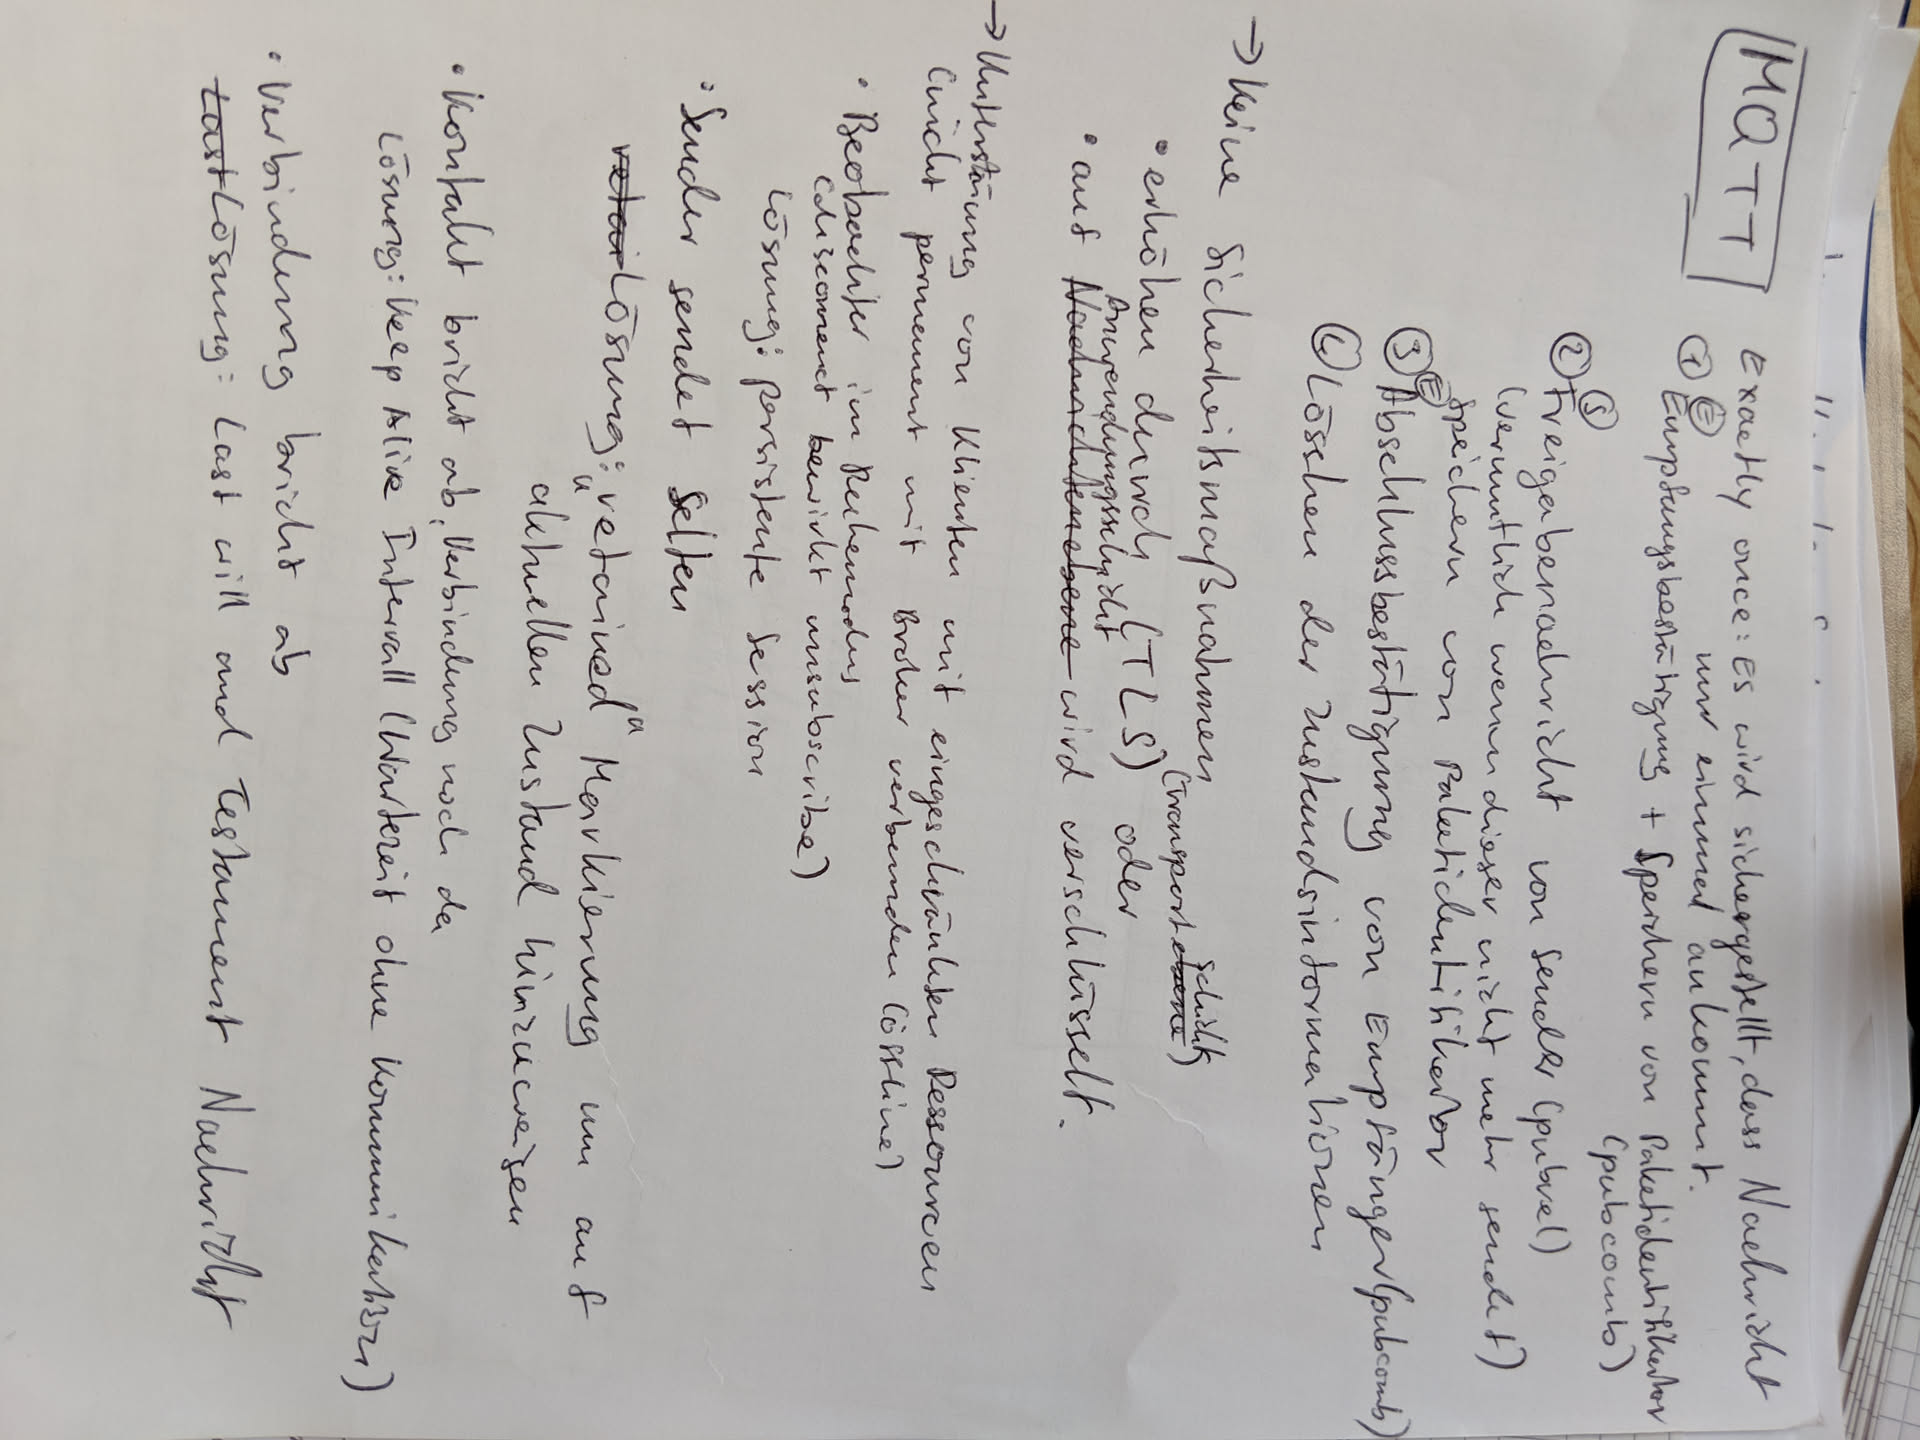 MQTT
Exactly once: Es wird sichergestellt, dass Nachricht
nur einmal ankommt.
① Ⓔ Empfangsbestätigung + Speichern von Paketidentifikator
(pubcomb)
② Ⓢ Freigabenachricht von Sender (pubrel)
(vermutlich wenn dieser nicht mehr sendet)
Speichern von Paketidentifikator
③ Ⓔ Abschlussbestätigung von Empfänger (pubcomb)
④ Löschen der Zustandsinformationen
→ Keine Sicherheitsmaßnahmen
(Transportebene schicht)
• erhöhen durch (TLS) oder
Anwendungsschicht
• auf Nachrichtenebene wird verschlüsselt.
→ Unterstützung von Klienten mit eingeschränkten Ressourcen
(nicht permement mit Broker verbunden (offline)
• Beobachter im Ruhemodus
(disconnect bewirkt unsubscribe)
Lösung: persistente Session
• Sender sendet selten
retai Lösung: "retained" Markierung um auf
aktuellen Zustand hinzuweisen
• Kontakt bricht ab, Verbindung noch da
Lösung: Keep Alive Intervall (Wartezeit ohne Kommunikation)
• Verbindung bricht ab
Last Lösung: Last will and Testament Nachricht